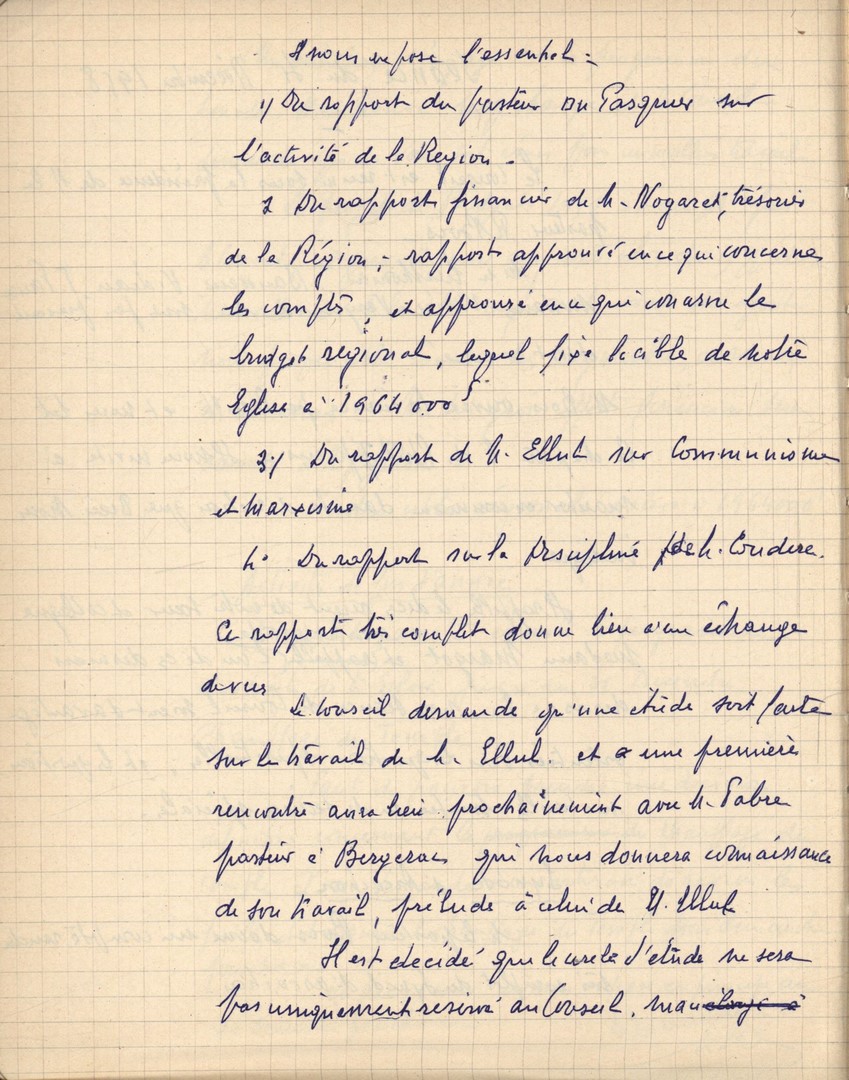 Il nous expose l'essentiel :
1/ Du rapport du pasteur Du Pasquier sur
l'activité de la Région -
2 Du rapport financier de M. Nogaret, trésorier
de la Région ; rapport approuvé en ce qui concerne
les comptes, et approuvé en ce qui concerne le
budget régional, lequel fixe la cible de notre
Eglise à 1 964 000 F
3/ Du rapport de M. Ellul sur Communisme
et Marxisme
4° Du rapport sur la Discipline de M. Couderc.
Ce rapport très complet donne lieu à un échange
de vues
Le Conseil demande qu'une étude soit faite
sur le travail de M. Ellul. et une première
rencontre aura lieu prochainement avec M. Fabre
pasteur à Bergerac qui nous donnera connaissance
de son travail, prélude à celui de M. Ellul
Il est décidé que le cercle d'étude ne sera
pas uniquement réservé au Conseil, mais